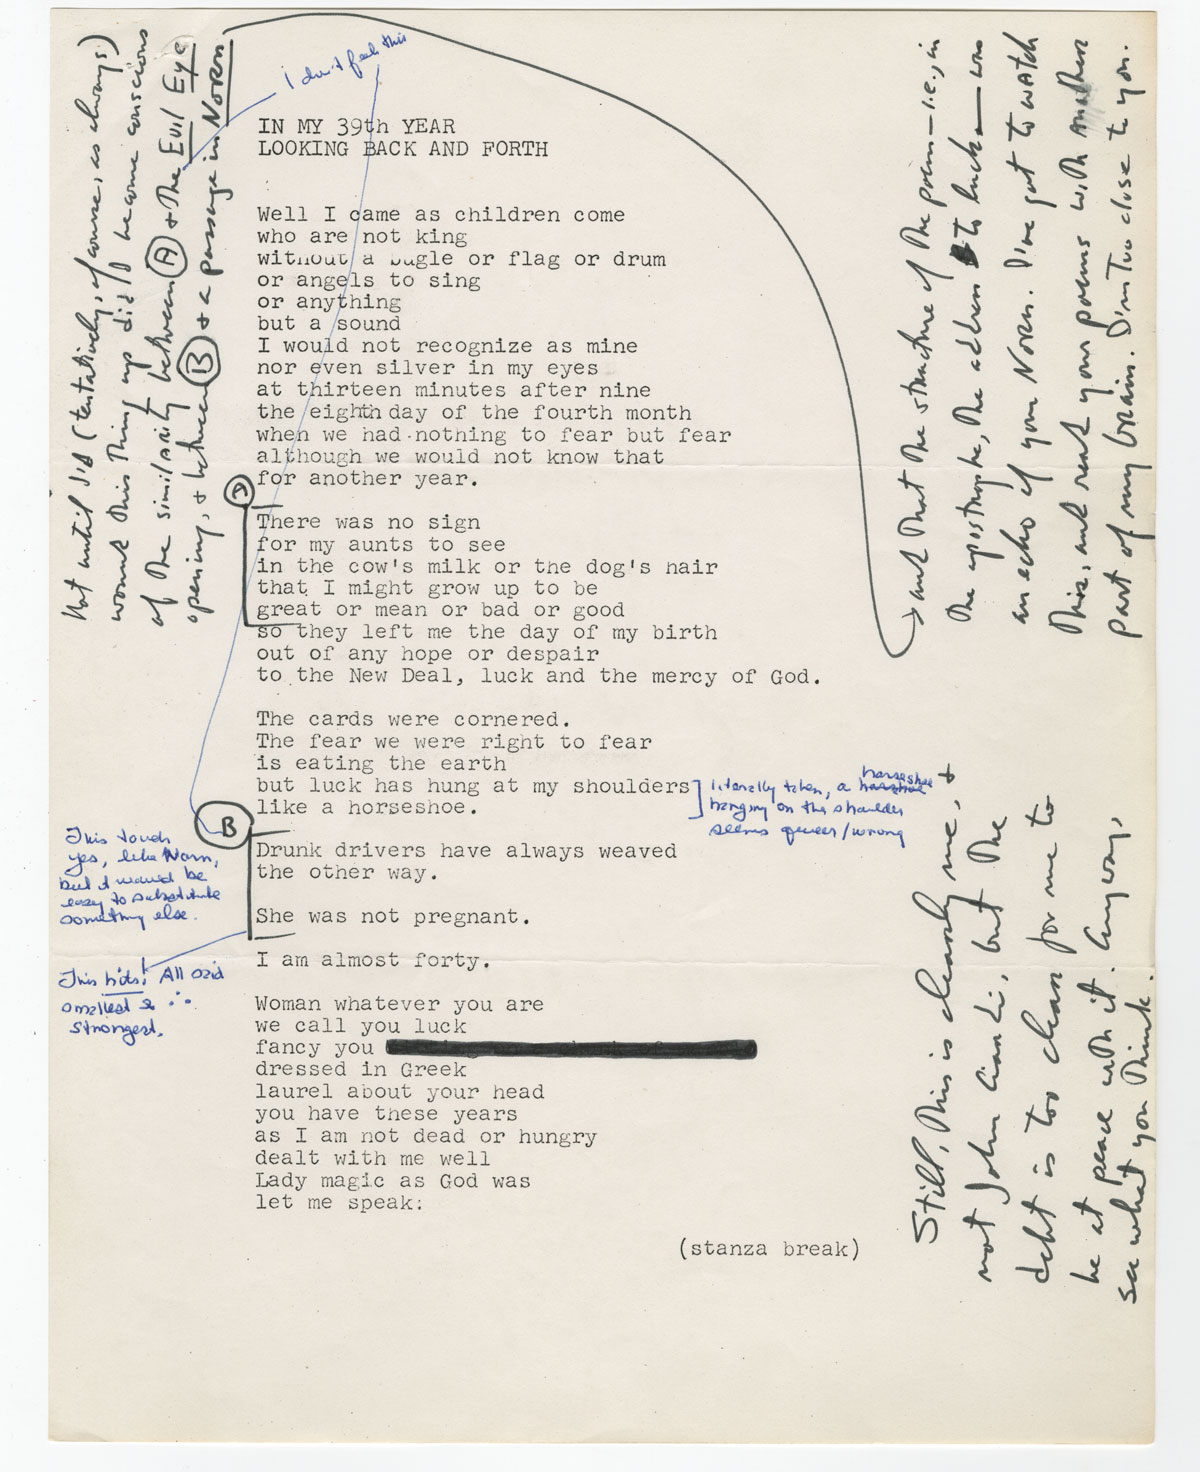 Not until I'd (tentatively, of course, as always)
wound this thing up did I become conscious
of the similarity between (A) + the Evil Eye
opening, + between (B) + a passage in Norn
I don't feel this
IN MY 39th YEAR
LOOKING BACK AND FORTH
Well I came as children come
who are not king
without a bugle or flag or drum
or angels to sing
or anything
but a sound
I would not recognize as mine
nor even silver in my eyes
at thirteen minutes after nine
the eighth day of the fourth month
when we had nothing to fear but fear
although we would not know that
for another year.
There was no sign
for my aunts to see
in the cow's milk or the dog's hair
that I might grow up to be
great or mean or bad or good
so they left me the day of my birth
out of any hope or despair
to the New Deal, luck and the mercy of God.
The cards were cornered.
The fear we were right to fear
is eating the earth
but luck has hung at my shoulders
like a horseshoe.
literally taken, a horseshoe
hanging on the shoulder
seems queer/wrong
B
Drunk drivers have always weaved
the other way.
She was not pregnant.
This touch
yes, like Norn,
but it would be
easy to substitute
something else.
This hits! All said
smallest & ∴
strongest.
I am almost forty.
Woman whatever you are
we call you luck
fancy you
dressed in Greek
laurel about your head
you have these years
as I am not dead or hungry
dealt with me well
Lady magic as God was
let me speak:
(stanza break)
and that the structure of the poem — i.e., in
the apostrophe, the address to luck — was
an echo of your Norn. I've got to watch
this, and read your poems with another
part of my brain. I'm too close to you.
Still, this is clearly me, +
not John Ciardi, but the
debt is too clear for me to
be at peace with it. Anyway,
see what you think.